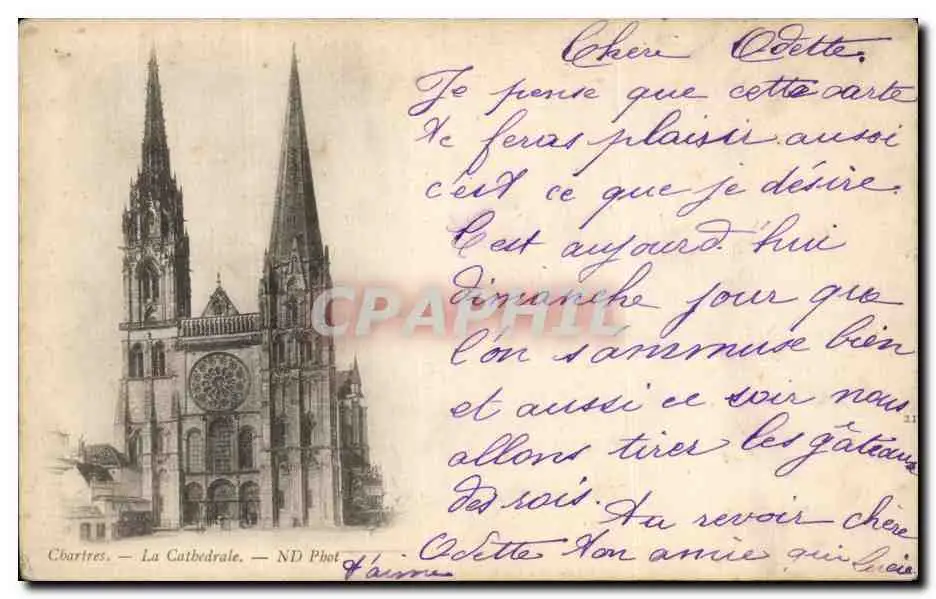 Chéri Odette.
Je pense que cette carte
te feras plaisir aussi
c'est ce que je désire.
C'est aujourd'hui
dimanche jour que
l'on s'ammuse bien
et aussi ce soir nous
allons tirer les gâteaux
des rois.
Au revoir chère
Odette ton amie qui
t'aime
Lucie
CPARPHIL
Chartres. — La Cathedrale. — ND Phot